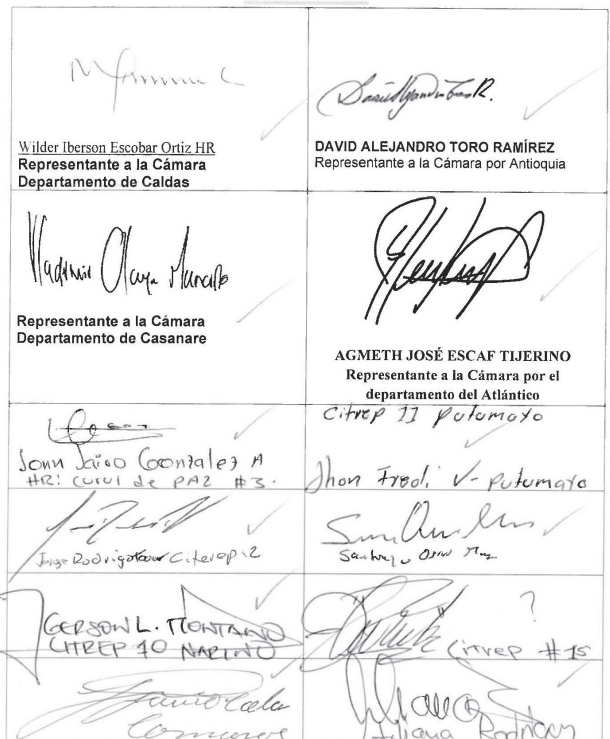 Wilder Iberson Escobar Ortiz HR
Representante a la Cámara
Departamento de Caldas
DAVID ALEJANDRO TORO RAMÍREZ
Representante a la Cámara por Antioquia
Vladimir Olaya Mancipe
Representante a la Cámara
Departamento de Casanare
AGMETH JOSÉ ESCAF TIJERINO
Representante a la Cámara por el
departamento del Atlántico
John Jairo Gonzalez A
HR: curul de PAZ #3.
Citrep 11 Putumayo
Jhon Fredi V- Putumayo
Jorge Rodrigo Tovar Citerep 12
GERSON L. MONTAÑO
CITREP 10 NARIÑO
?
Citrep #15
Liliana Rodríguez